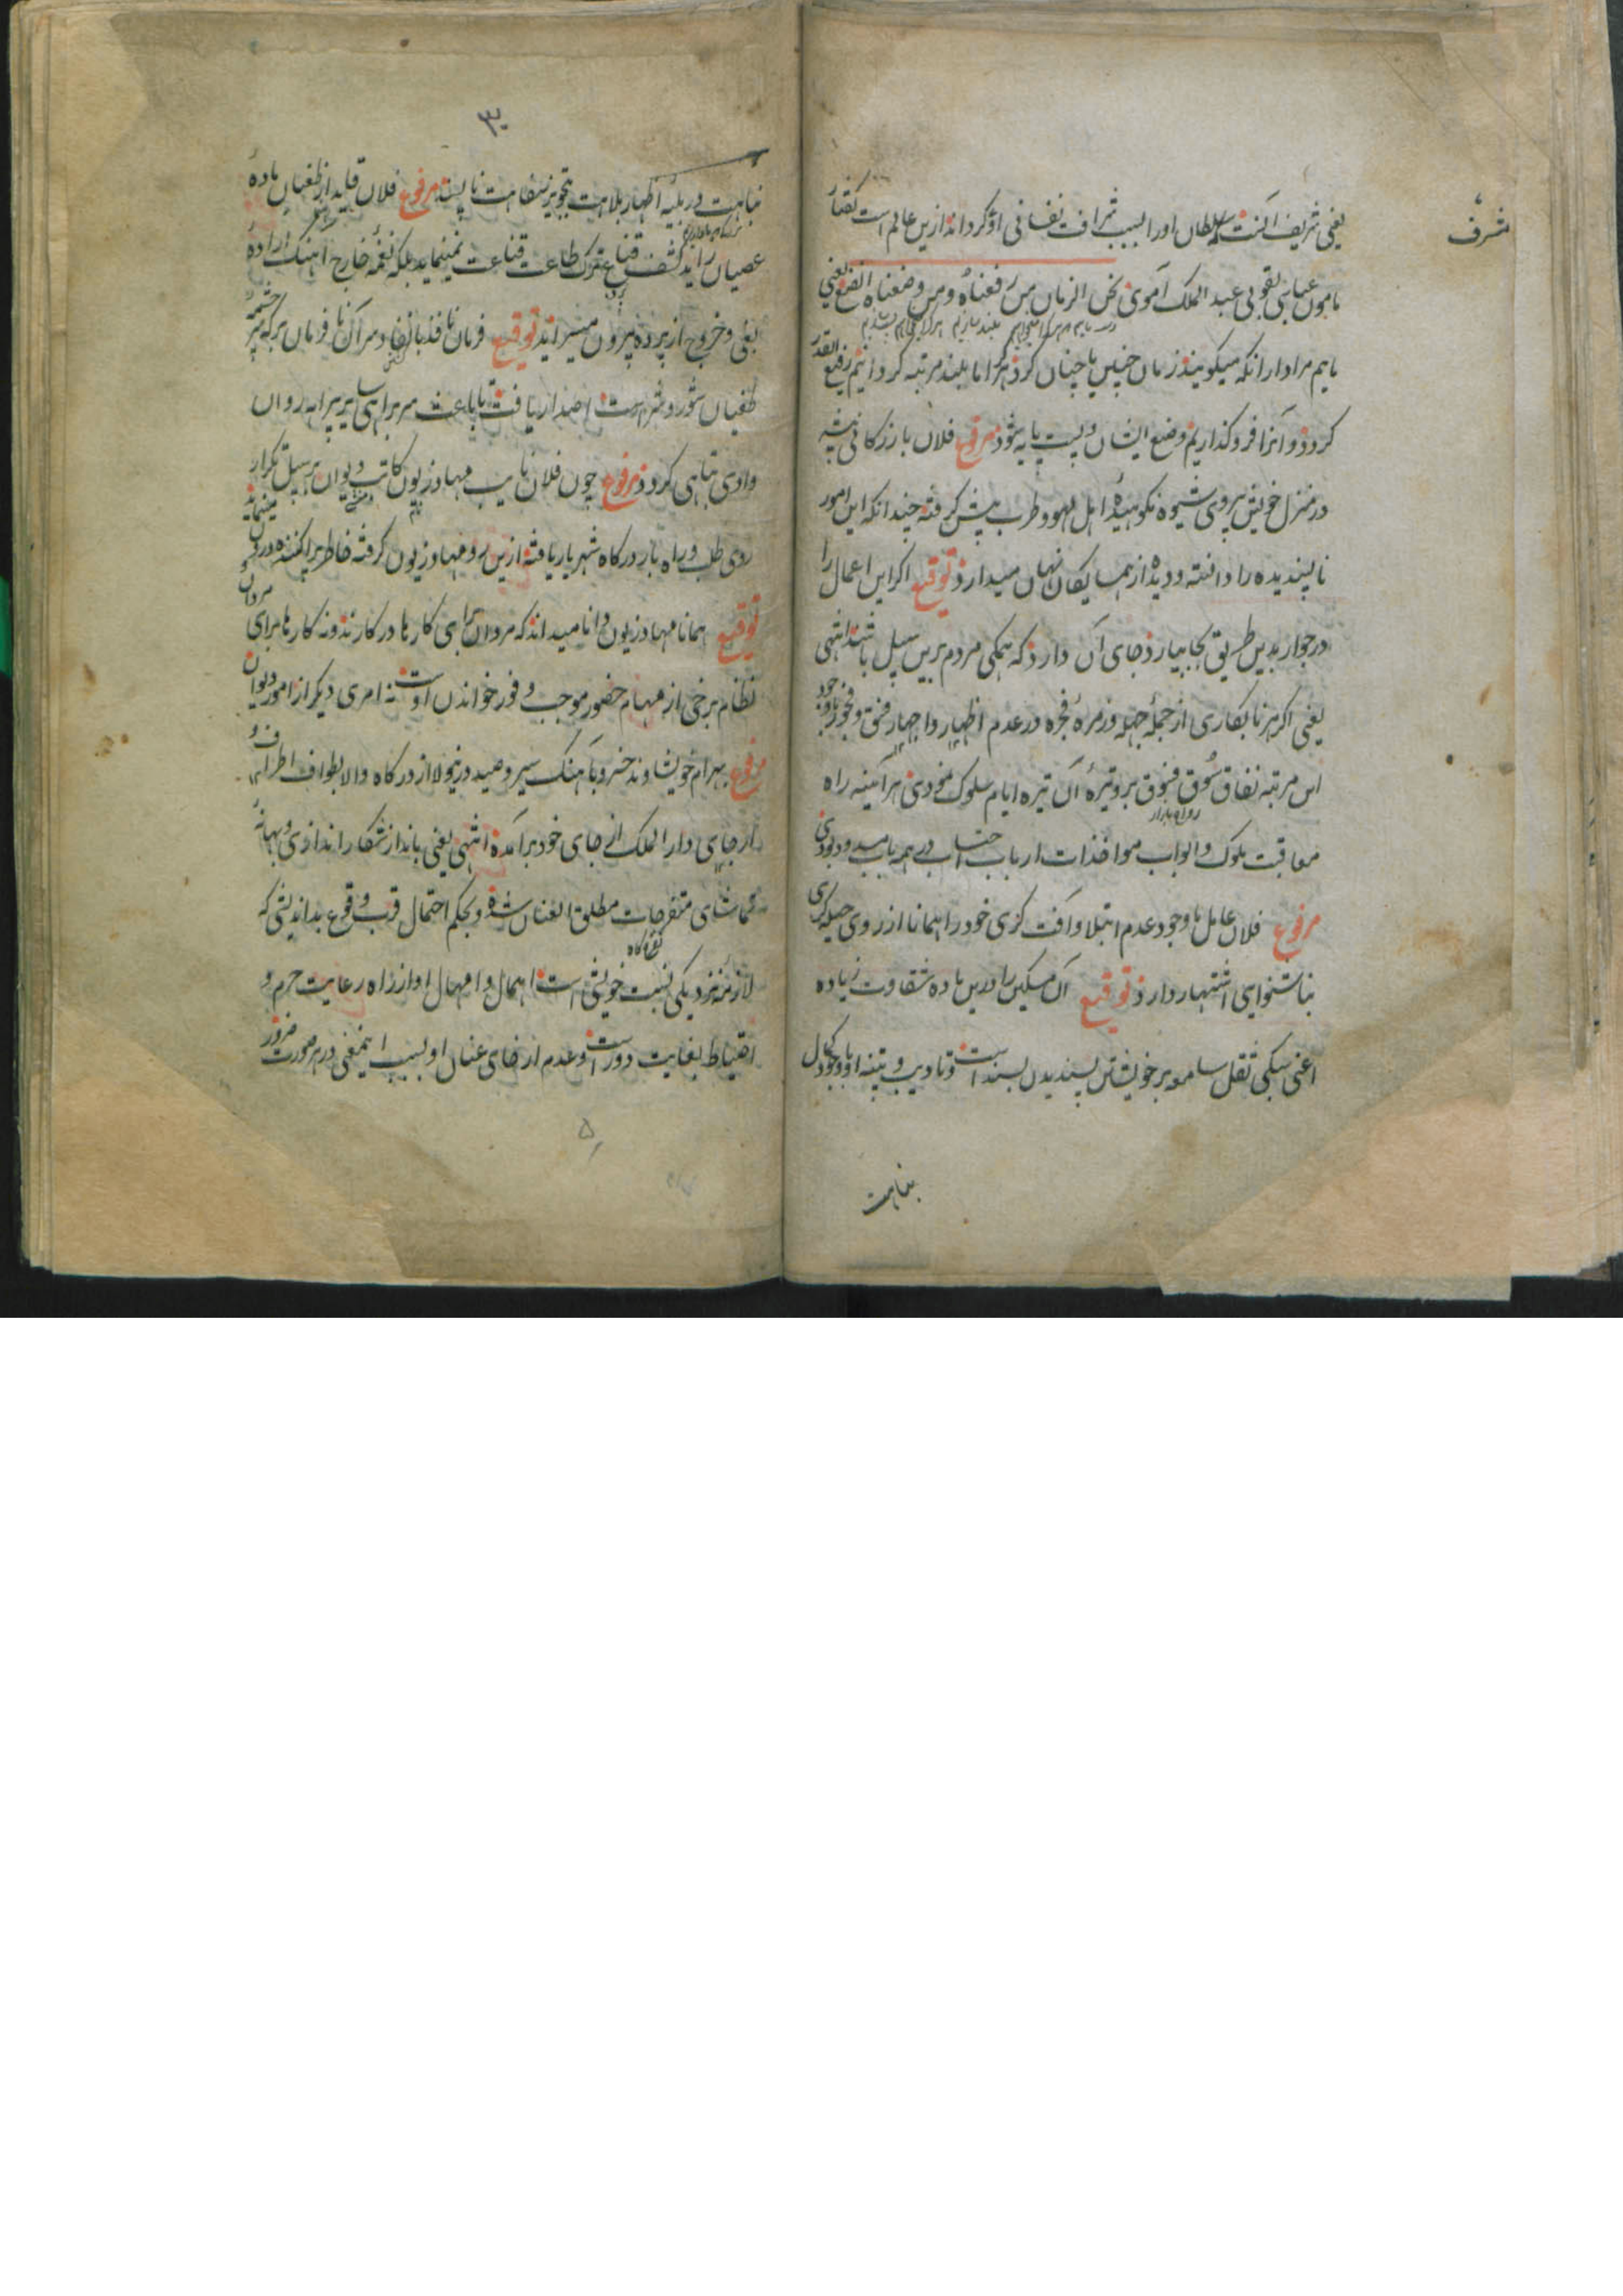 شرف
یعنی شریف آنست سلطان او را بسبب شرافت نفسانی او گرداند ازین عالم است گفتار
مامون عباسی بقولی عبد الملک اموی نحن الزمان من رفعناه ومن وضعناه اتضع یعنی
مایم مراد از آنکه میگویند زمان چنین یا چنان کرد هر کرا ما بلند مرتبه گردانیم رفیع القدر
گردد و آنرا فرو گذاریم وضع ایشان و پست پایه شود مرفوع فلان بازرگانی پیشه
در منزل خویش پیروی شیوه نکوهیدهٔ اهل لهو و طرب پیش گرفته چندانکه این امور
ناپسندیده را دانسته و دیده از همسایگان نهان میدارد توقیع اگر این اعمال را
در جوار بدین طریق بجا بیارد جای آن دارد که همگی مردم برین سبیل باشند انتهی
یعنی اگر هر نابکاری از جملهٔ جهله و زمرهٔ فجره در عدم اظهار و اجهار فسق و فجور با وجود
این مرتبه نفاق سوق فسوق بر وتیرهٔ آن تیره ایام سلوک نمودی هر آئینه راه
معاقبت ملوک و ابواب مواخذات ارباب حساب در هر باب مسدود بودی
مرفوع فلان عامل با وجود عدم ابتلا و آفت کری خود را همانا از روی حیله گری
بناشنوایی اشتهار دارد توقیع آن مسکین را درین باده شقاوت زیاده
اعنی سبکی ثقل سامعه بر خویشتن پسندیدن بسند است و تادیب و تنبیه او با وجود کمال
بناهت
۳۰
نباهت در بلیه اظهار بلاهت بتجویز سفاهت ناپسند مرفوع فلان قاید از طغیان باده
عصیان را بد کشف قناع بترک طاعت قناعت نمینماید بلکه نغمه خارج آهنگ اراده
بغی و خروج از پرده بیرون میسراید توقیع فرمان نافذ بانفاذ سر آن نافرمان بر که سر چشمهٔ
طغیان شور و شر است اصدار یافت تا باعث سر براهی سایر بیراهه روان
وادی تباهی گردد مرفوع چون فلان نایب مهادزیون کاتب دیوان بر سبیل تکرار
روی طلب و راه بار درگاه شهریار یافته ازین رو مهادزیون گرفته خاطر پراکنده درون مینماید
توقیع همانا مهادزیون دانا میداند که مردان برای کارها در کارند و نه کارها برای مردان
نظام برخی از مهام حضور موجب وفور خواندن اوست نه امری دیگر از امور دیوان
مرفوع بهرام خویشاوند خسرو بآهنگ سیر و صید درینولا از درگاه والا بطواف اطراف
از جای دار الملک از جای خود برآمده انتهی یعنی بانداز شکار اندازی و بهانهٔ
تماشای متفرجات مطلق العنان شده و بحکم احتمال قرب وقوع بداندیشی که
تفرجگاه
لازمهٔ نزدیکی نسبت خویشی است اهمال و امهال او از راه رعایت حزم و
احتیاط بغایت دور است و عدم ارخای عنان او بسبب اینمعنی در هر صورت ضرور